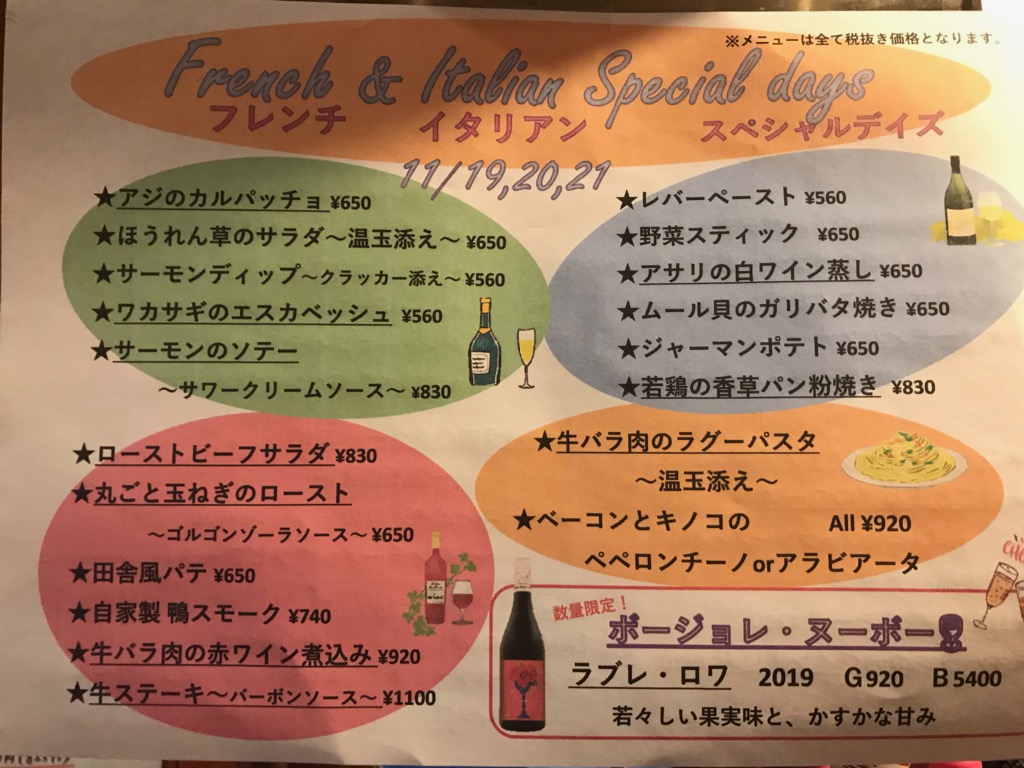 ※メニューは全て税抜き価格となります。
French & Italian Special days
フレンチ イタリアン スペシャルデイズ
11/19,20,21
★アジのカルパッチョ ¥650
★ほうれん草のサラダ～温玉添え～ ¥650
★サーモンディップ～クラッカー添え～ ¥560
★ワカサギのエスカベッシュ ¥560
★サーモンのソテー
～サワークリームソース～ ¥830
★レバーペースト ¥560
★野菜スティック ¥650
★アサリの白ワイン蒸し ¥650
★ムール貝のガリバタ焼き ¥650
★ジャーマンポテト ¥650
★若鶏の香草パン粉焼き ¥830
★ローストビーフサラダ ¥830
★丸ごと玉ねぎのロースト
～ゴルゴンゾーラソース～ ¥650
★田舎風パテ ¥650
★自家製 鴨スモーク ¥740
★牛バラ肉の赤ワイン煮込み ¥920
★牛ステーキ～バーボンソース～ ¥1100
★牛バラ肉のラグーパスタ
～温玉添え～
★ベーコンとキノコの All ¥920
ペペロンチーノorアラビアータ
数量限定！
ボージョレ・ヌーボー
ラブレ・ロワ 2019 G920 B5400
若々しい果実味と、かすかな甘み